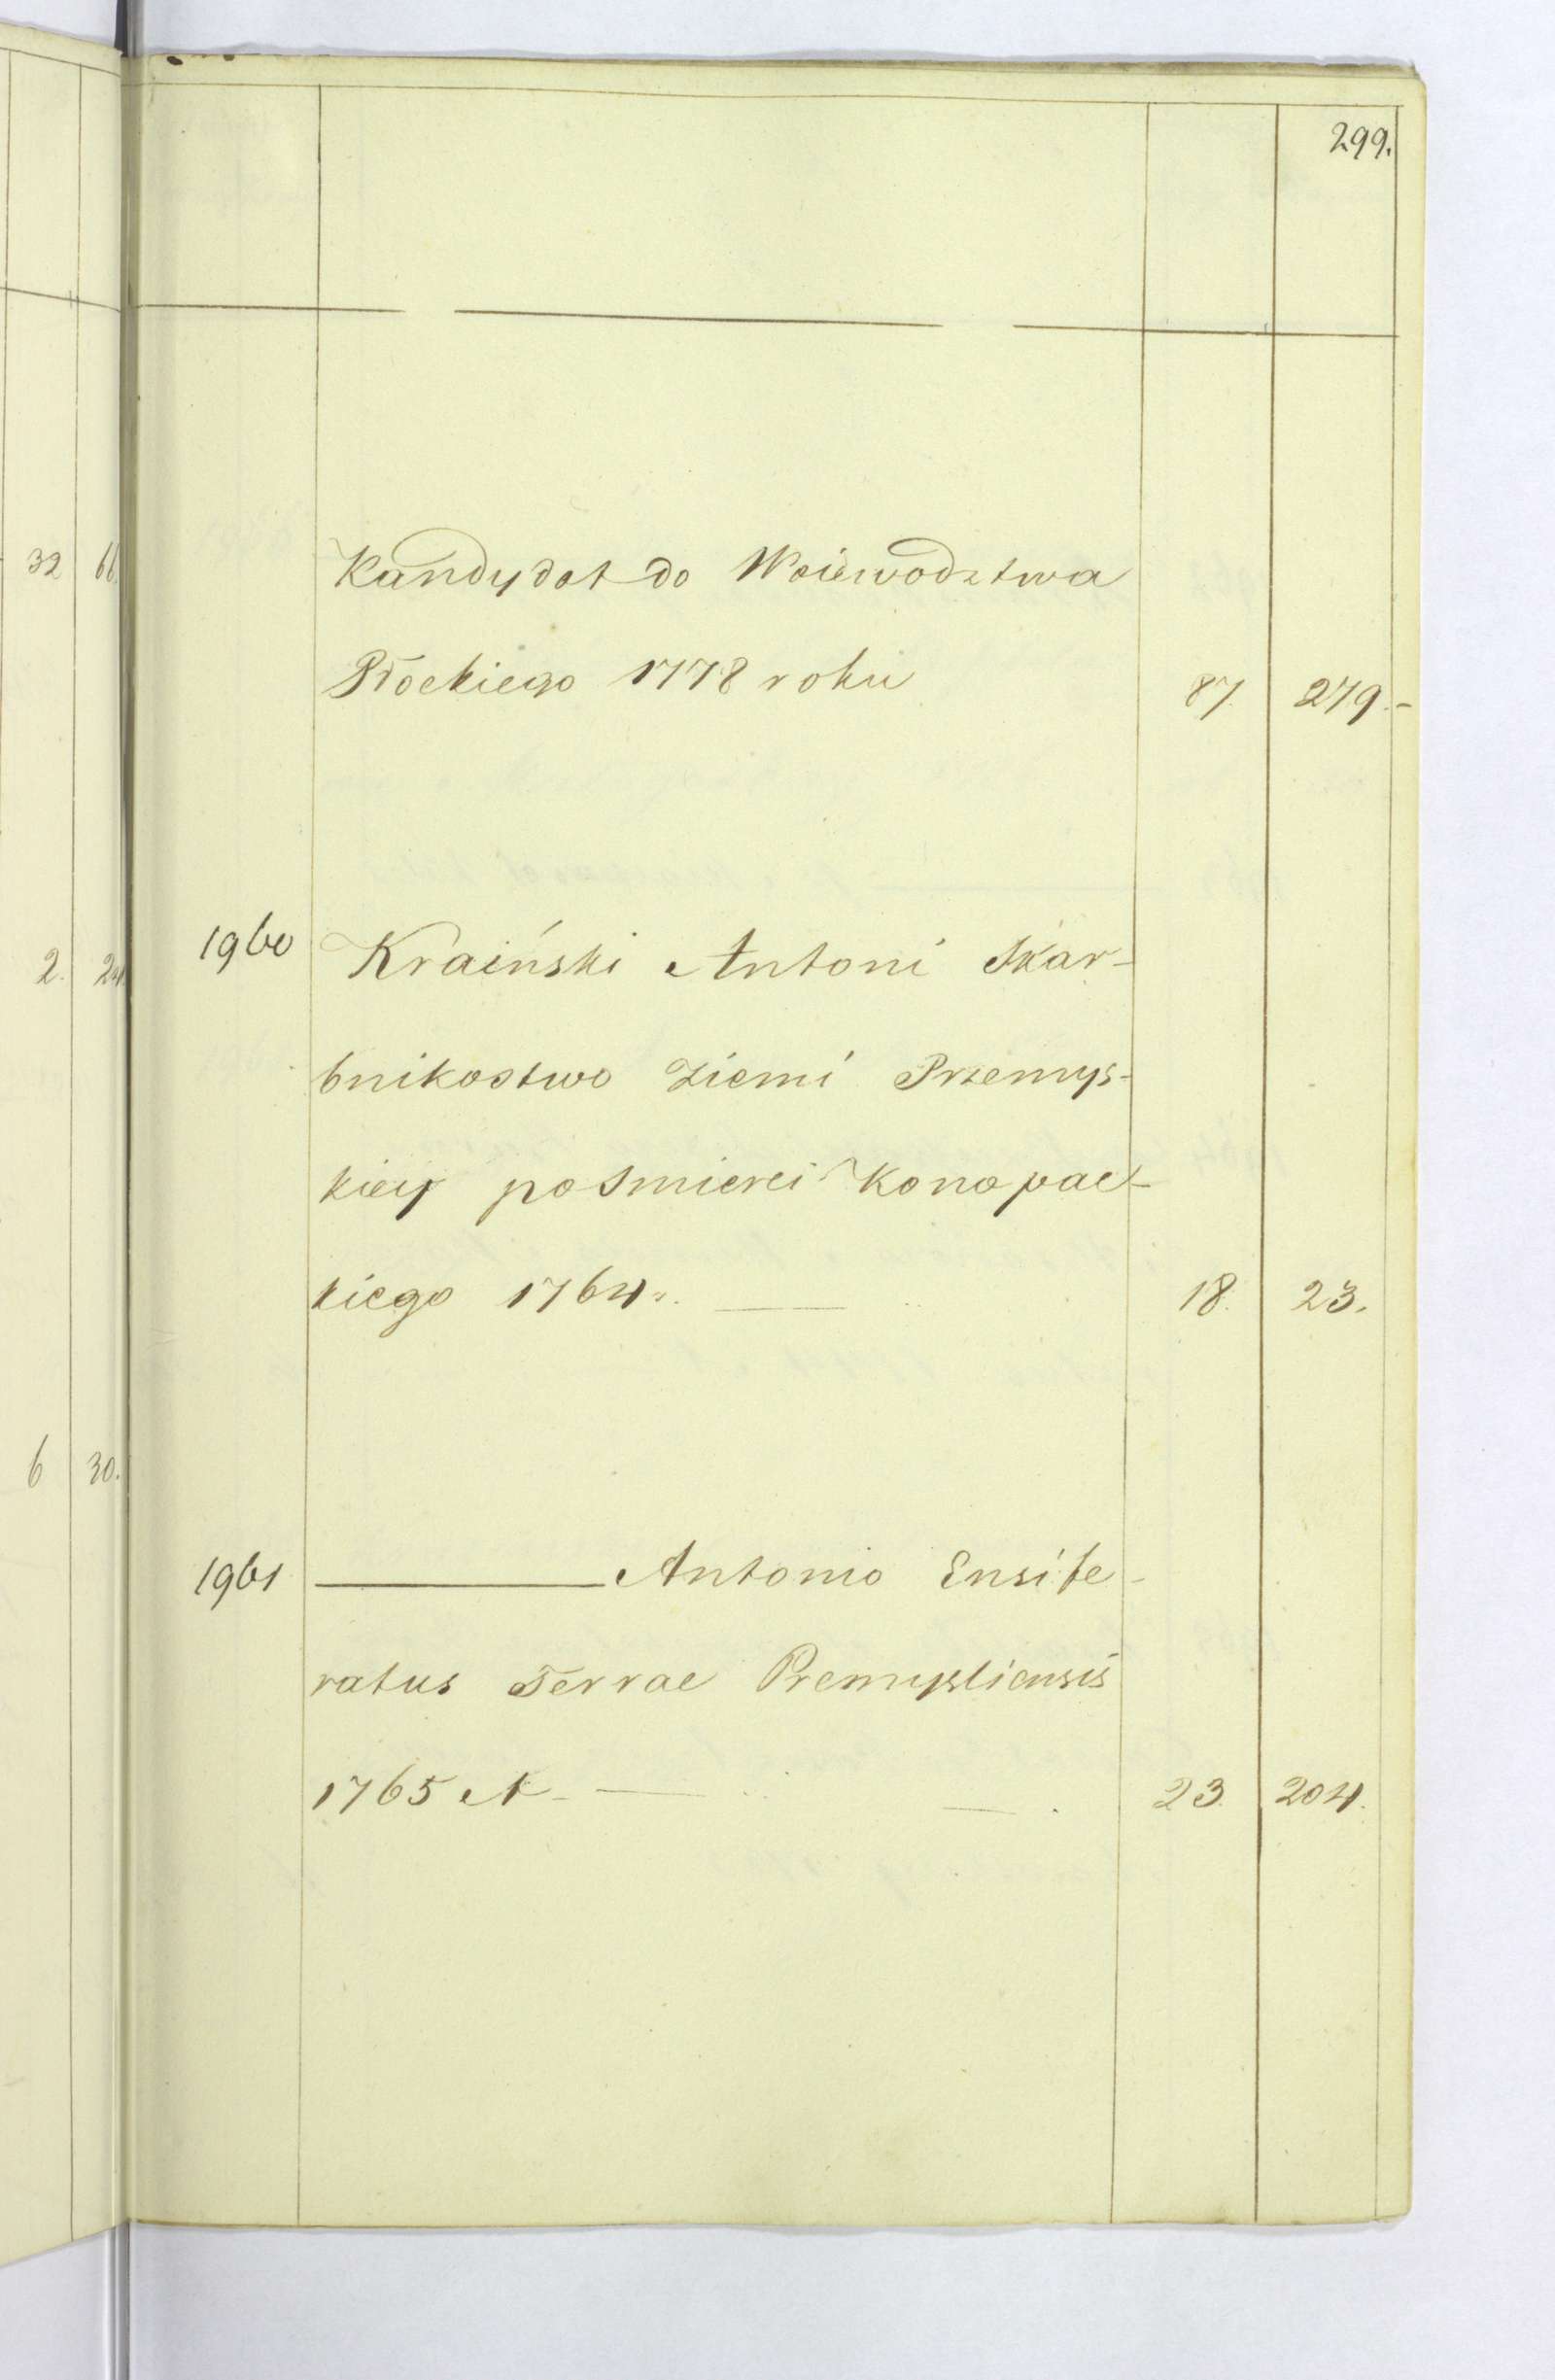 299.
Kandydat do Woiewodztwa
Płockiego 1778 roku 87. 279.-
1960 Kraiński Antoni Skar-
bnikostwo Ziemi Przemys-
kiey po smierci Konopac-
kiego 1764. 18. 23.
1961 ——— Antonio Ensife-
ratus Terrae Premysliensis
1765 A 23. 204.
32 66.
2. 24.
6 30.